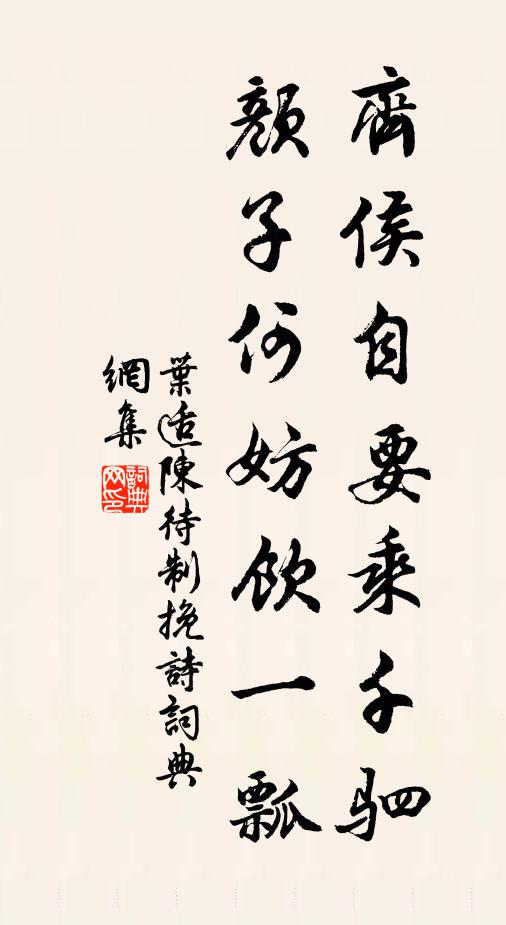 齊侯自要乘千駟
顏子何妨飲一瓢
葉適陳待制挽詩詞典
網集
詞典網印